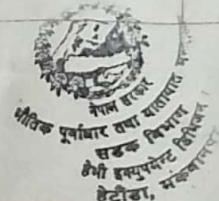 नेपाल सरकार
भौतिक पूर्वाधार तथा यातायात
सडक विभाग
हेभी इक्युपमेन्ट डिभिजन
हेटौंडा, मकवानपुर